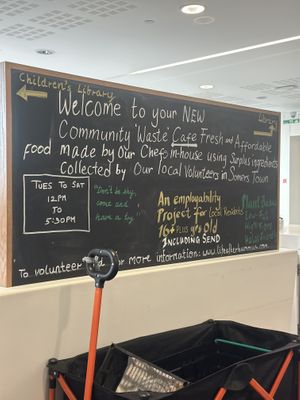 Children's Library
Library
Welcome to your NEW
Community 'Waste' Cafe Fresh and Affordable
Food made by Our Chefs in-house using Surplus ingredients
collected by Our local Volunteers in Somers Town
TUES TO SAT
12PM
TO
5:30PM
"Don't be shy,
come and
have a try"
An employability
Project for Local Residents
16+ PLUS yrs Old
INCLUDING SEND
Plant Based
Low-Fat
High Fibre
To volunteer and for more information: